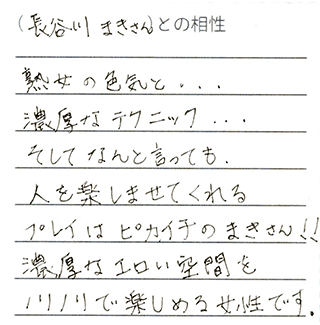 (長谷川 まきさん)との相性
熟女の色気と...
濃厚なテクニック...
そしてなんと言っても.
人を楽しませてくれる
プレイはピカイチのまきさん!!
濃厚なエロい空間を
ノリノリで楽しめる女性です.